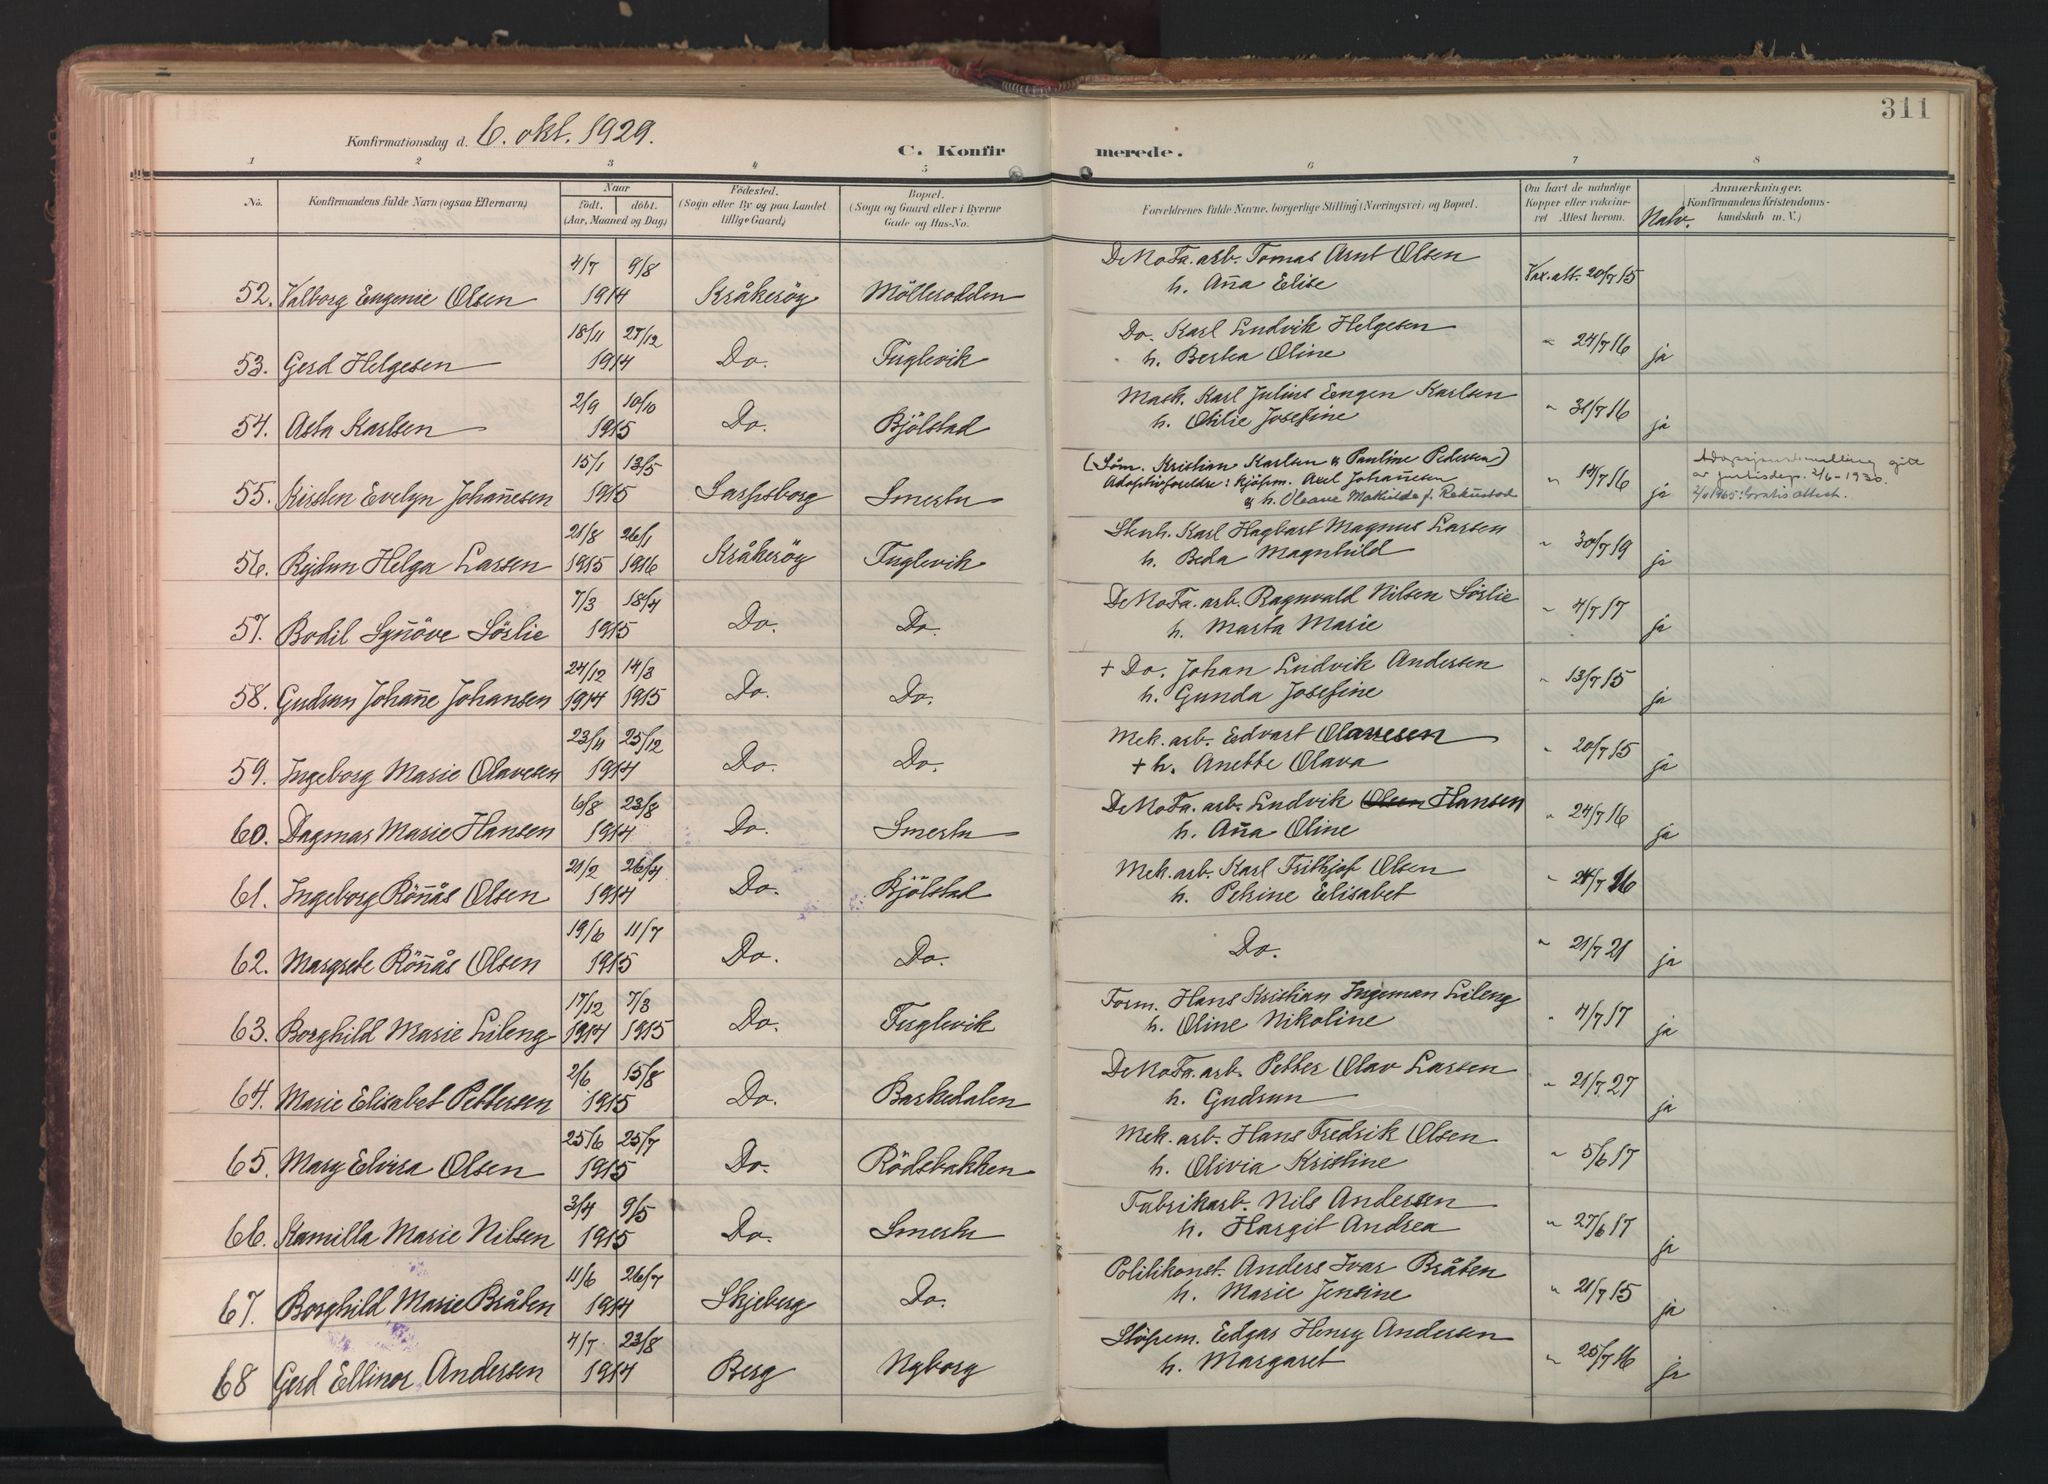 311
Konfirmationsdag d. 6. okt. 1929.
C. Konfirmerede.
1 2 3 4 5 6 7 8
No. Konfirmandens fulde Navn (ogsaa Efternavn) Naar født. døbt. (Aar, Maaned og Dag) Fødested. (Sogn eller By og paa Landet tillige Gaard) Bopæl. (Sogn og Gaard eller i Byerne Gade og Hus-No. Forældrenes fulde Navne, borgerlige Stilling (Næringsvei) og Bopæl. Om havt de naturlige Kopper eller vakcineret Attest herom. Natv. Anmærkninger. (Konfirmandens Kristendomskundskab m. V.)
4/7 9/8 DeNoFa. arb. Tomas Arnt Olsen
52. Valborg Eugenie Olsen 1914 Kråkeröy Möllerodden h. Anna Elise Vax. att. 20/7 15
18/11 27/12 Do. Karl Ludvik Helgesen
53. Gerd Helgesen 1914 Do. Fuglevik h. Berta Oline " 24/7 16 ja
2/9 10/10 Mask. Karl Julius Eugen Karlsen
54. Asta Karlsen 1915 Do. Bjölstad h. Otilie Josefine " 31/7 16 ja
15/1 13/5 (Söm. Kristian Karlsen & Pauline Pedersen)
55. Kirsten Evelyn Johannesen 1915 Sarpsborg Smertu Adoptivforeldre: Kjöpm. Axel Johannesen & h. Oleane Matilde f. Rekustad " 14/7 16 ja
av justisdep. 2/6-1930.
Gratis attest.
21/8 26/1 Karl Hagbart Magnus Larsen
56. Rejdun Helga Larsen 1915 1916 Kråkeröy Fuglevik h. Beda Magnhild " 30/7 19 ja
7/3 18/4 DeNoFa. arb. Ragnvald Nilsen Sörlie
57. Bodil Synnöve Sörlie 1915 Do. Do. h. Marta Marie " 4/7 17 ja
24/12 14/3 + Do. Johan Ludvik Andersen
58. Gudrun Johanne Johansen 1914 1915 Do. Do. h. Gunda Josefine " 13/7 15 ja
23/11 25/12 Mek. arb. Edvart Olavesen
59. Ingeborg Marie Olavesen 1914 Do. Do. + h. Anette Olava " 20/7 15 ja
6/8 23/8 DeNoFa. arb. Ludvik Olsen Hansen
60. Dagmar Marie Hansen 1914 Do. Smertu h. Anna Oline " 24/7 16 ja
21/2 26/4 Mek. arb. Karl Fritjof Olsen
61. Ingeborg Rönnås Olsen 1914 Do. Bjölstad h. Petrine Elisabet " 24/7 16 ja
19/6 11/7
62. Margrete Rönnås Olsen 1915 Do. Do. Do. " 21/7 21 ja
17/12 7/3 Form. Hans Kristian Ingeman Lileng
63. Borghild Marie Lileng 1914 1915 Do. Fuglevik h. Oline Nikoline " 4/7 17 ja
2/6 15/8 DeNoFa. arb. Petter Olav Larsen
64. Marie Elisabet Pettersen 1915 Do. Barkedalen h. Gudrun " 21/7 27 ja
25/6 25/7 Mek. arb. Hans Fredrik Olsen
65. Mary Elvira Olsen 1915 Do. Rödsbakken h. Olivia Kristine " 5/6 17
3/4 9/5 Fabrikarb. Nils Andersen
66. Kamilla Marie Nilsen 1915 Do. Smertu h. Hargit Andrea " 27/6 17 ja
11/6 26/7 Politikonst. Anders Ivar Bråten
67. Borghild Marie Bråten 1914 Skjeberg Do. h. Marie Jensine " 21/7 15 ja
4/7 23/8 Stöpem. Edgar Henry Andersen
68 Gerd Ellinor Andersen 1914 Berg Nyborg h. Margaret " 25/7 16 ja